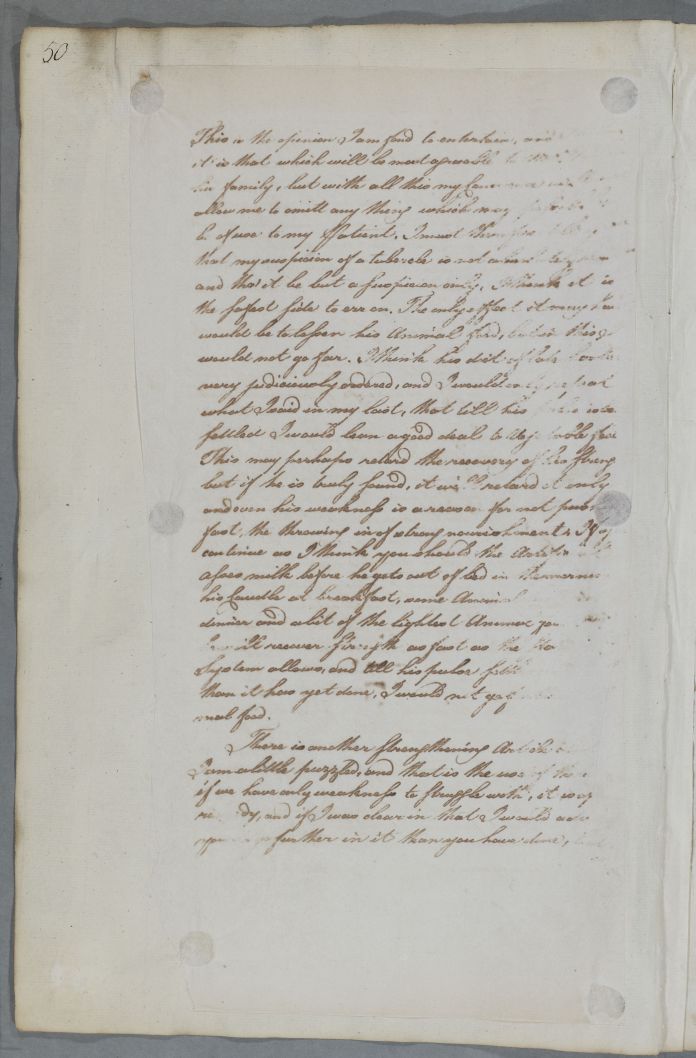 50
This is the opinion I am fond to entertain, and
it is that which will be most agreeable to
his family, but with all this my Conscience will
allow me to omitt any thing which may
be of use to my Patient. I must therefore
that my suspicion of a tubercle is not
and tho' it be but a suspicion only, I think it is
the safest side to err on. The only effect it may
would be to lessen his Animal food, but in this I
would not go far. I think his diet of late
very judiciously ordered, and I would only repeat
what I said in my last, that till his pulse is
settled I would lean a good deal to Vegetable
This may perhaps retard the recovery of his strength
but if he is truly sound, it will retard it only
and even his weakness is a reason for not
fast, the throwing in of strong nourishment. If
continue as I think you should the
asses milk before he gets out of bed in the
his Caudle at breakfast, some Animal
dinner and a bit of the lightest Animal
will recover strength as fast as the
System allows, and till his pulse
than it has yet done, I would not
mal food.
There is another strengthening Article
I am a little puzzled, and that is the use of
if we have only weakness to struggle with, it is
and if I was clear in that I would
go further in it than you have done,